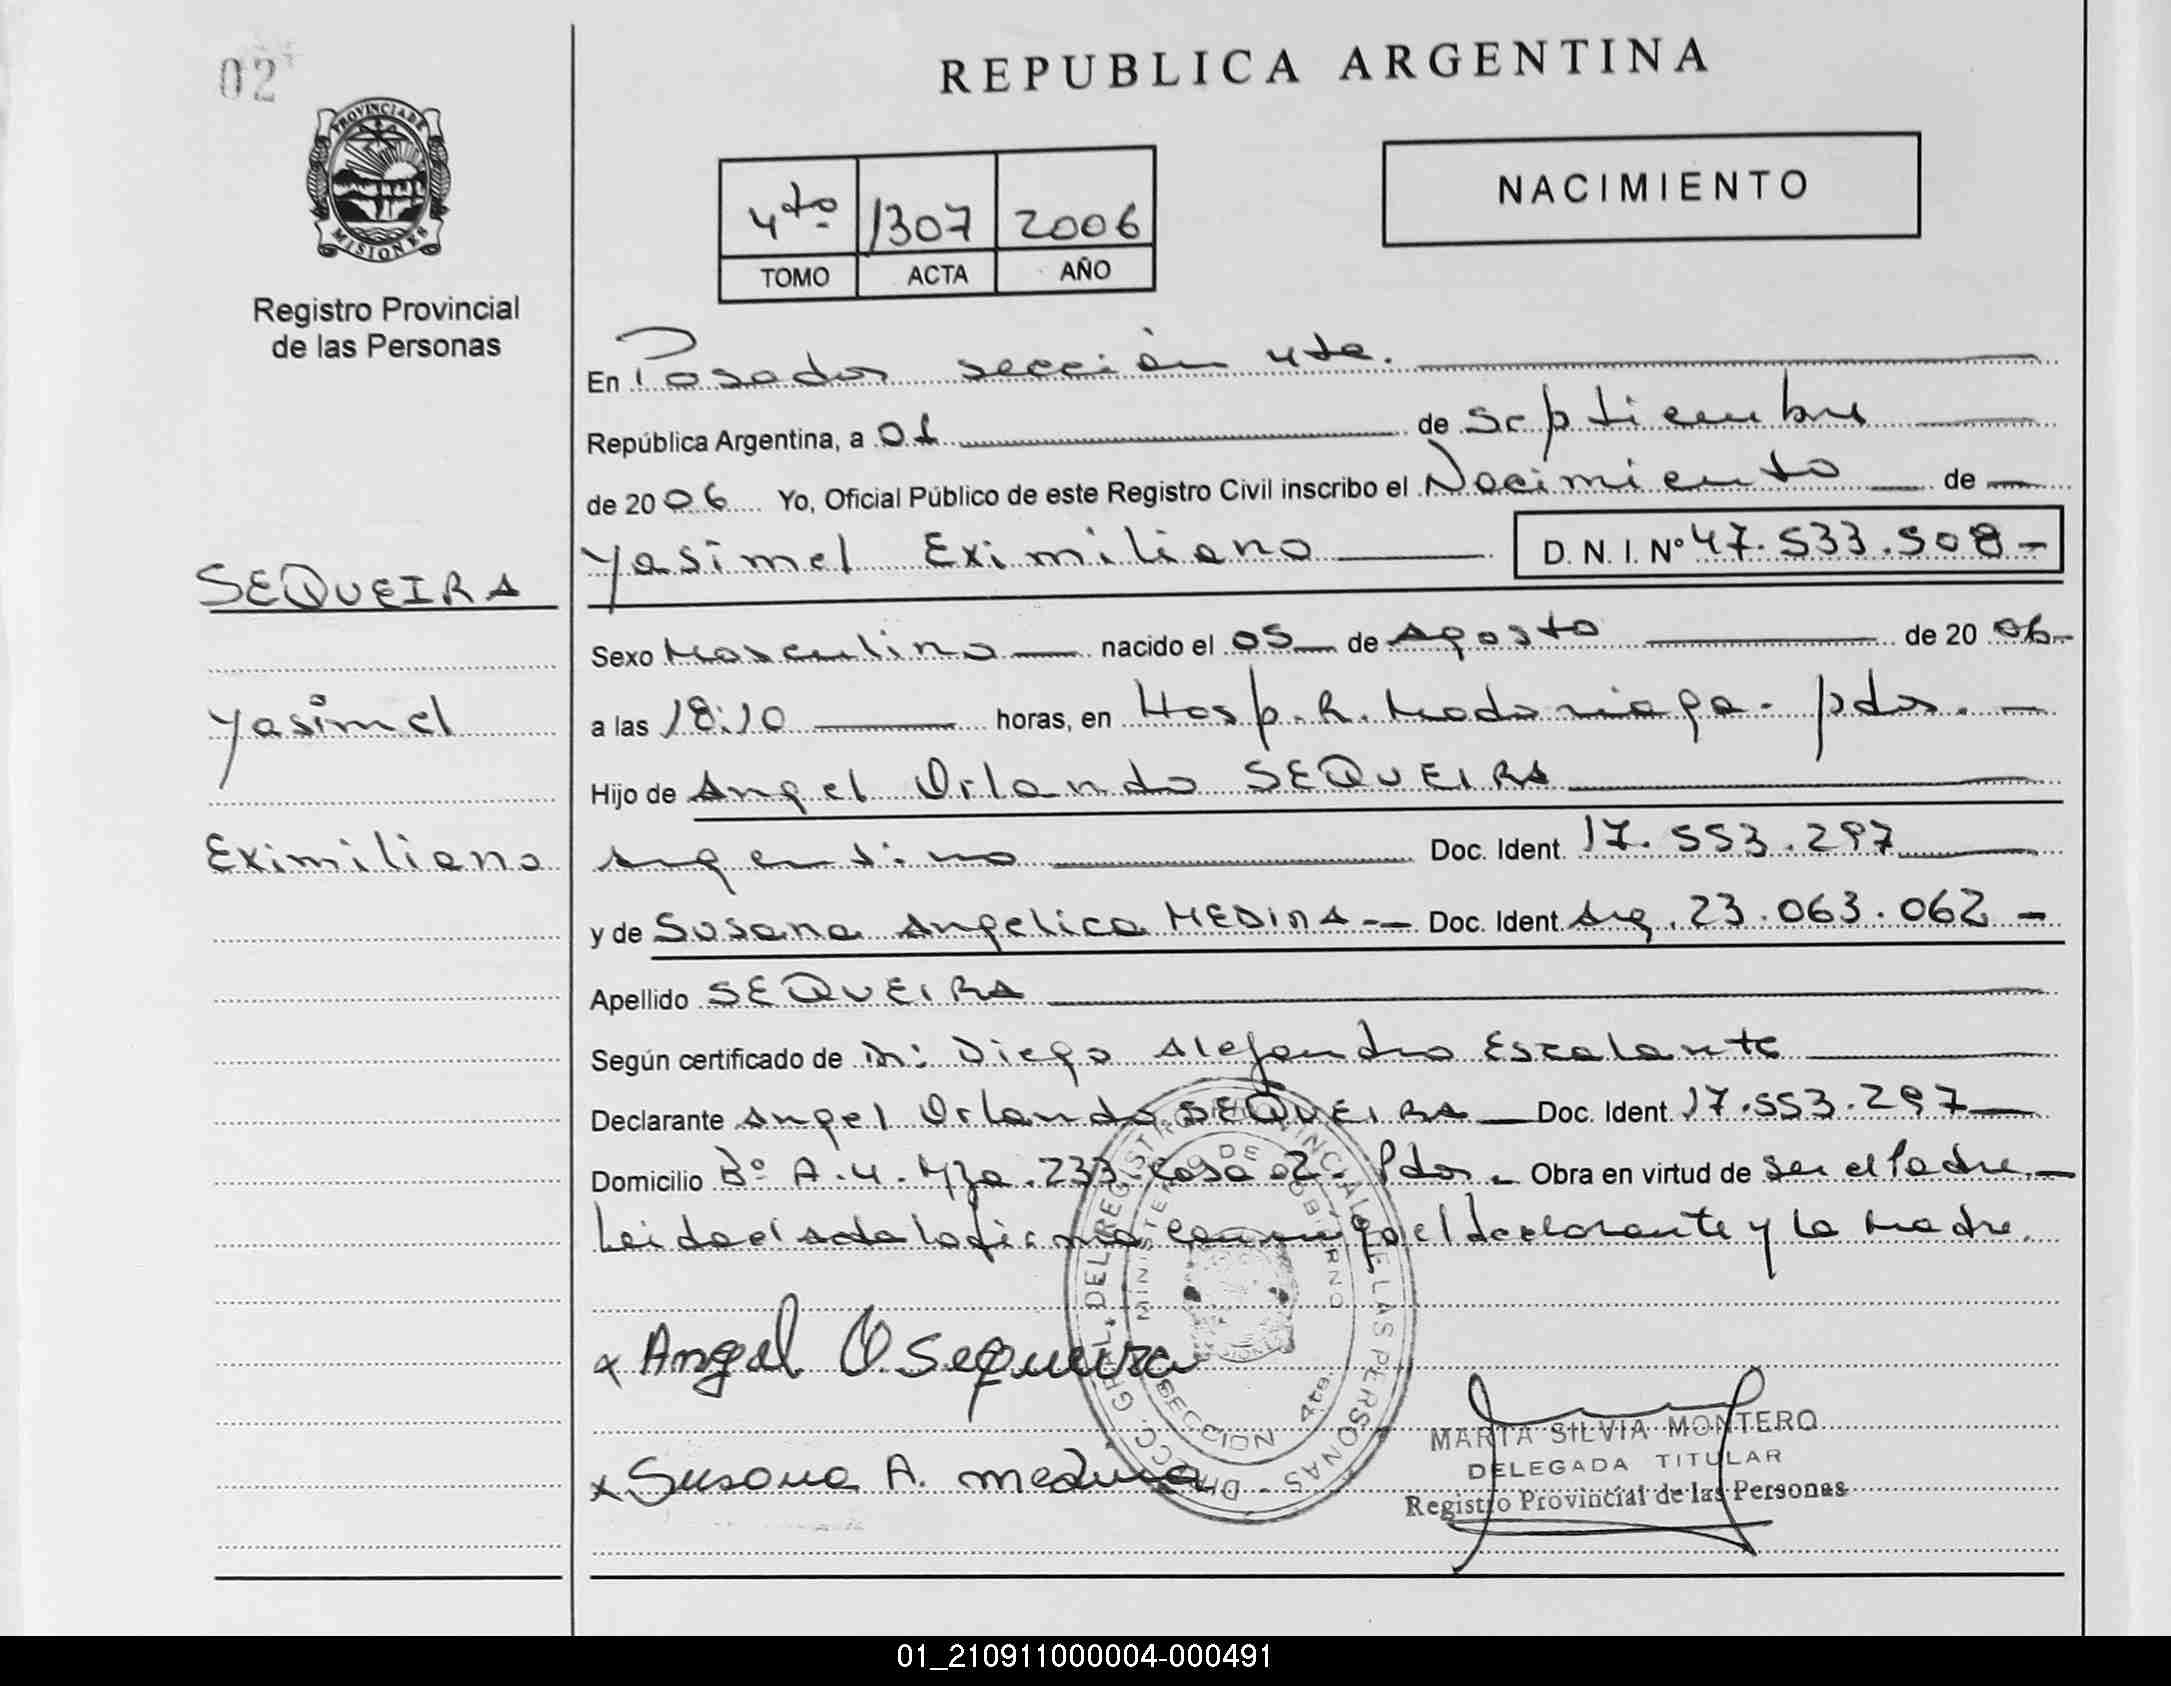 02
PROVINCIA DE
MISIONES
Registro Provincial
de las Personas
REPUBLICA ARGENTINA
4to 1307 2006
TOMO ACTA AÑO
NACIMIENTO
En Posadas sección 4ta.
República Argentina, a 01 de Septiembre
de 2006 Yo, Oficial Público de este Registro Civil inscribo el Nacimiento de
Yasimel Eximiliano D. N. I. Nº 47.533.508-
SEQUEIRA
Sexo Masculino nacido el 05 de Agosto de 20 06-
Yasimel
a las 18:10 horas, en Hosp. R. Madariaga - pdas. -
Hijo de Angel Orlando SEQUEIRA
Eximiliano
Argentino Doc. Ident. 17.553.297
y de Susana Angelica MEDINA -- Doc. Ident. Arg. 23.063.062 -
Apellido SEQUEIRA
Según certificado de Dr: Diego Alejandro Escalante
Declarante Angel Orlando SEQUEIRA Doc. Ident. 17.553.297
Domicilio Bº A.4. Mza. 233. casa 02. Pdas. Obra en virtud de ser el Padre.
Leida el acta la firma conmigo el declarante y la madre.
x Angel O Sequeira
x Susana A. medina
DIRECC. GRAL. DEL REGISTRO PROVINCIAL DE LAS PERSONAS -
MINISTERIO DE GOBIERNO
SECCION 4ta.
MARTA SILVIA MONTERO
DELEGADA TITULAR
Registro Provincial de las Personas
01_210911000004-000491